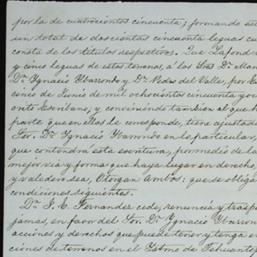 por la de cuatrocientos cincuenta; formando su
un total de doscientas cincuenta leguas cu
consta de los titulos respectivos. Que Lafond
y cinco leguas de estos terrenos, á los Srs. Dn. Man
Dn. Ygnacio y Dn. Pedro del Valle, por
de Junio de mil ochocientos cincuenta y
Escribano, y conviniendo tambien al que h
parte que en ellos le corresponde, tiene ajustado
Sor. Dn. Ygnacio en lo particular,
que contendrá esta escritura, por medio de la
mejor via y forma que haya lugar en derecho,
y valedero sea, Otorgan Ambos: que se obliga
condiciones siguientes.
Dn. J. C. Fernandez cede, renuncia y traspa
jamas, en favor del Sor. Dn. Ygnacio
acciones y derechos que puede tener y tenga en
ciones de terrenos en el Ystmo de Tehuantep